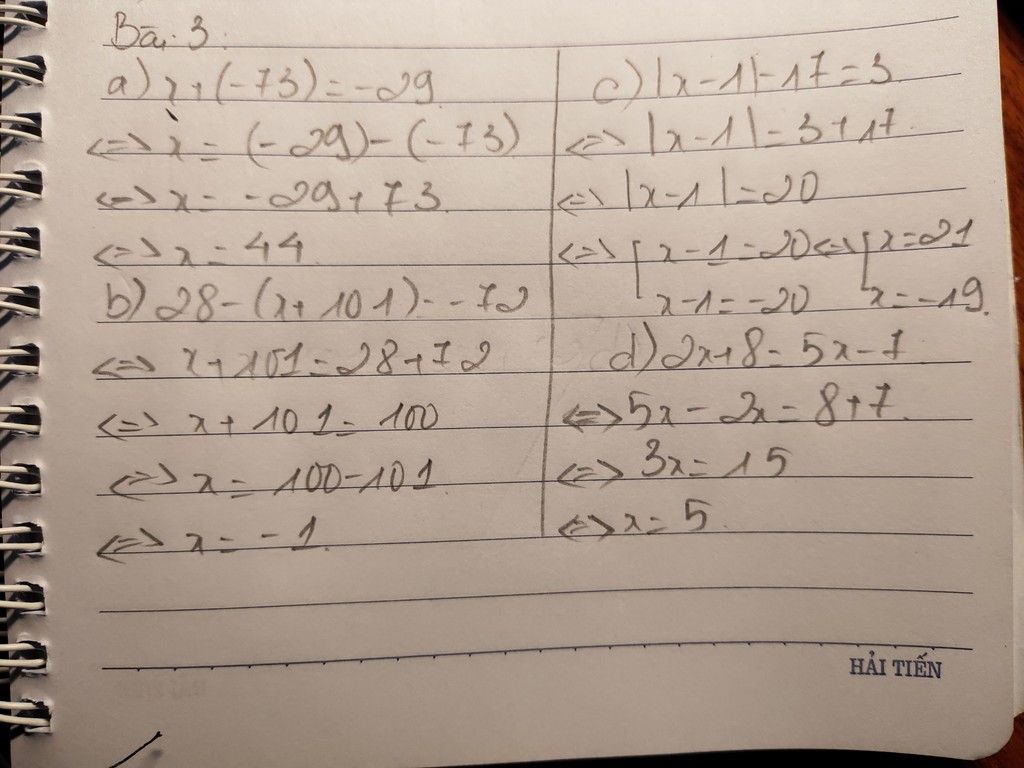 Bài 3:
a) x + (-73) = -29
<=> x = (-29) - (-73)
<=> x = -29 + 73
<=> x = 44
b) 28 - (x + 101) = -72
<=> x + 101 = 28 + 72
<=> x + 101 = 100
<=> x = 100 - 101
<=> x = -1.
c) |x - 1| - 17 = 3
<=> |x - 1| = 3 + 17
<=> |x - 1| = 20
<=> [ x - 1 = 20 <=> [ x = 21
x - 1 = -20 x = -19.
d) 2x + 8 = 5x - 7
<=> 5x - 2x = 8 + 7.
<=> 3x = 15
<=> x = 5.
HẢI TIẾN